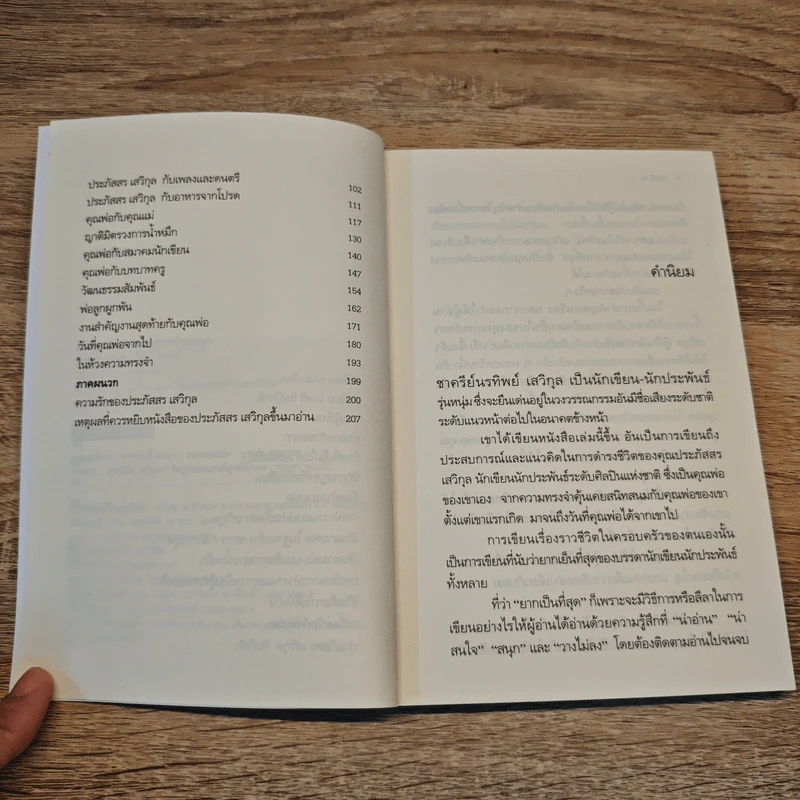 ประภัสสร เสวิกุล กับเพลงและดนตรี 102
ประภัสสร เสวิกุล กับอาหารจากโปรด 111
คุณพ่อกับคุณแม่ 117
ญาติมิตรวงการน้ำหมึก 130
คุณพ่อกับสมาคมนักเขียน 140
คุณพ่อกับบทบาทครู 147
วัฒนธรรมสัมพันธ์ 154
พ่อลูกผูกพัน 162
งานสำคัญงานสุดท้ายกับคุณพ่อ 171
วันที่คุณพ่อจากไป 180
ในห้วงความทรงจำ 193
ภาคผนวก 199
ความรักของประภัสสร เสวิกุล 200
เหตุผลที่ควรหยิบหนังสือของประภัสสร เสวิกุลขึ้นมาอ่าน 207
คำนิยม
ชาครีย์นรทิพย์ เสวิกุล เป็นนักเขียน-นักประพันธ์
รุ่นหนุ่ม ซึ่งจะยืนเด่นอยู่ในวงวรรณกรรมอันมีชื่อเสียงระดับชาติ
ระดับแนวหน้าต่อไปในอนาคตข้างหน้า
เขาได้เขียนหนังสือเล่มนี้ขึ้น อันเป็นการเขียนถึง
ประสบการณ์และแนวคิดในการดำรงชีวิตของคุณประภัสสร
เสวิกุล นักเขียนนักประพันธ์ระดับศิลปินแห่งชาติ ซึ่งเป็นคุณพ่อ
ของเขาเอง จากความทรงจำคุ้นเคยสนิทสนมกับคุณพ่อของเขา
ตั้งแต่เขาแรกเกิด มาจนถึงวันที่คุณพ่อได้จากเขาไป
การเขียนเรื่องราวชีวิตในครอบครัวของตนเองนั้น
เป็นการเขียนที่นับว่ายากเย็นที่สุดของบรรดานักเขียนนักประพันธ์
ทั้งหลาย
ที่ว่า "ยากเป็นที่สุด" ก็เพราะจะมีวิธีการหรือลีลาในการ
เขียนอย่างไรให้ผู้อ่านได้อ่านด้วยความรู้สึกที่ "น่าอ่าน" "น่า
สนใจ" "สนุก" และ "วางไม่ลง" โดยต้องติดตามอ่านไปจนจบ